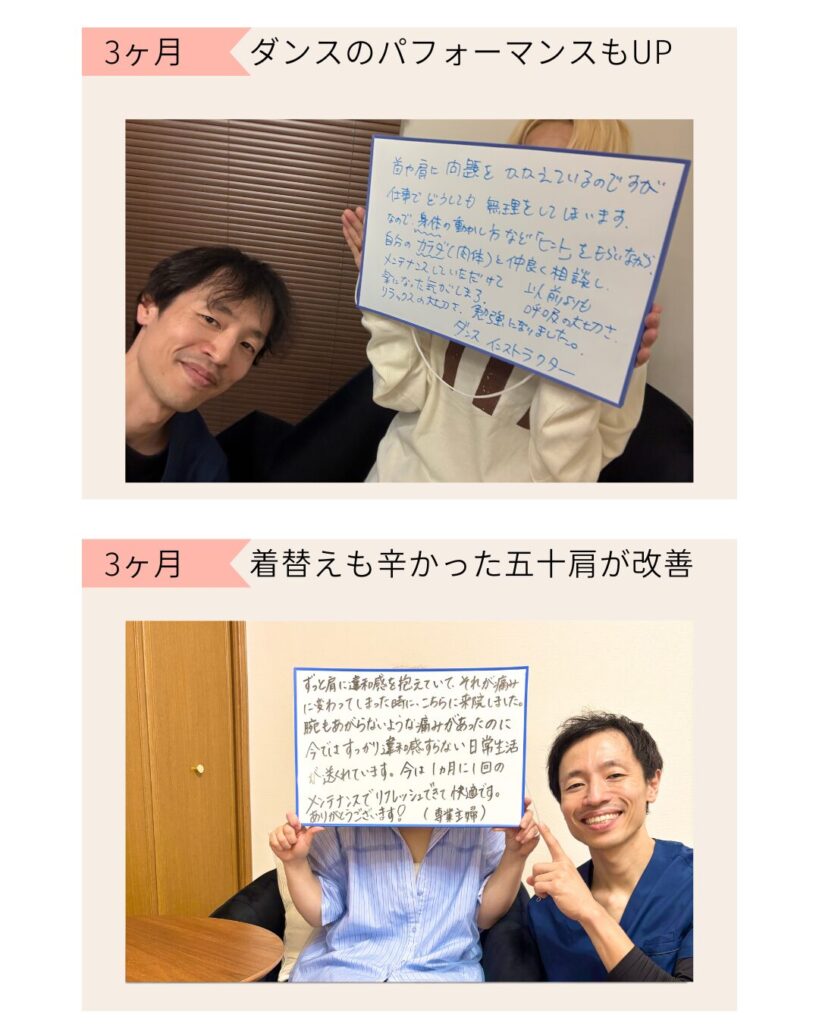 3ヶ月
ダンスのパフォーマンスもUP
首や肩に問題をかかえているのですが
仕事でどうしても無理をしてしまいます。
なので、身体の動かし方など「ヒント」をもらいながら、
自分のカラダ(肉体)と仲良く相談し、
メンテナンスしていただけて 以前よりも
楽になった気がします。 呼吸の大切さ、
リラックスの大切さ、勉強になりました。
ダンスインストラクター
3ヶ月
着替えも辛かった五十肩が改善
ずっと肩に違和感を抱えていて、それが痛み
に変わってしまった時に、こちらに来院しました。
腕もあがらないような痛みがあったのに
今ではすっかり違和感すらない日常生活
が送れています。今は1ヵ月に1回の
メンテナンスでリフレッシュできて快適です。
ありがとうございます! (専業主婦)